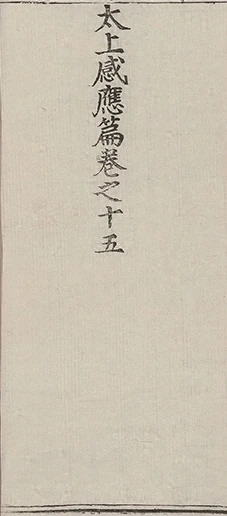 太上感應篇卷之十五